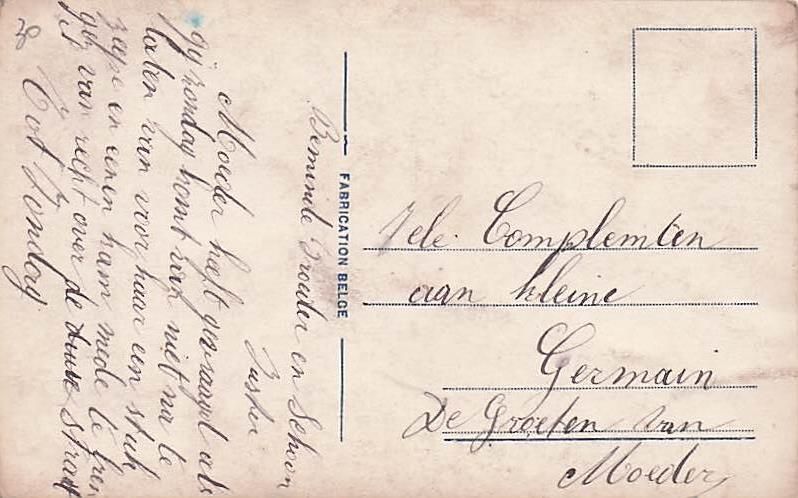 Beminde Broeder en Schoon
Zuster
Moeder heeft gevraagd als
gij zondag komt van niet na te
laten van voor haar een stuk
zeepe en eenen ham mede te bren
gen van recht over de straat
Tot Zondag
FABRICATION BELGE
Vele Complemten
aan kleine
Germain
De Groeten van
Moeder